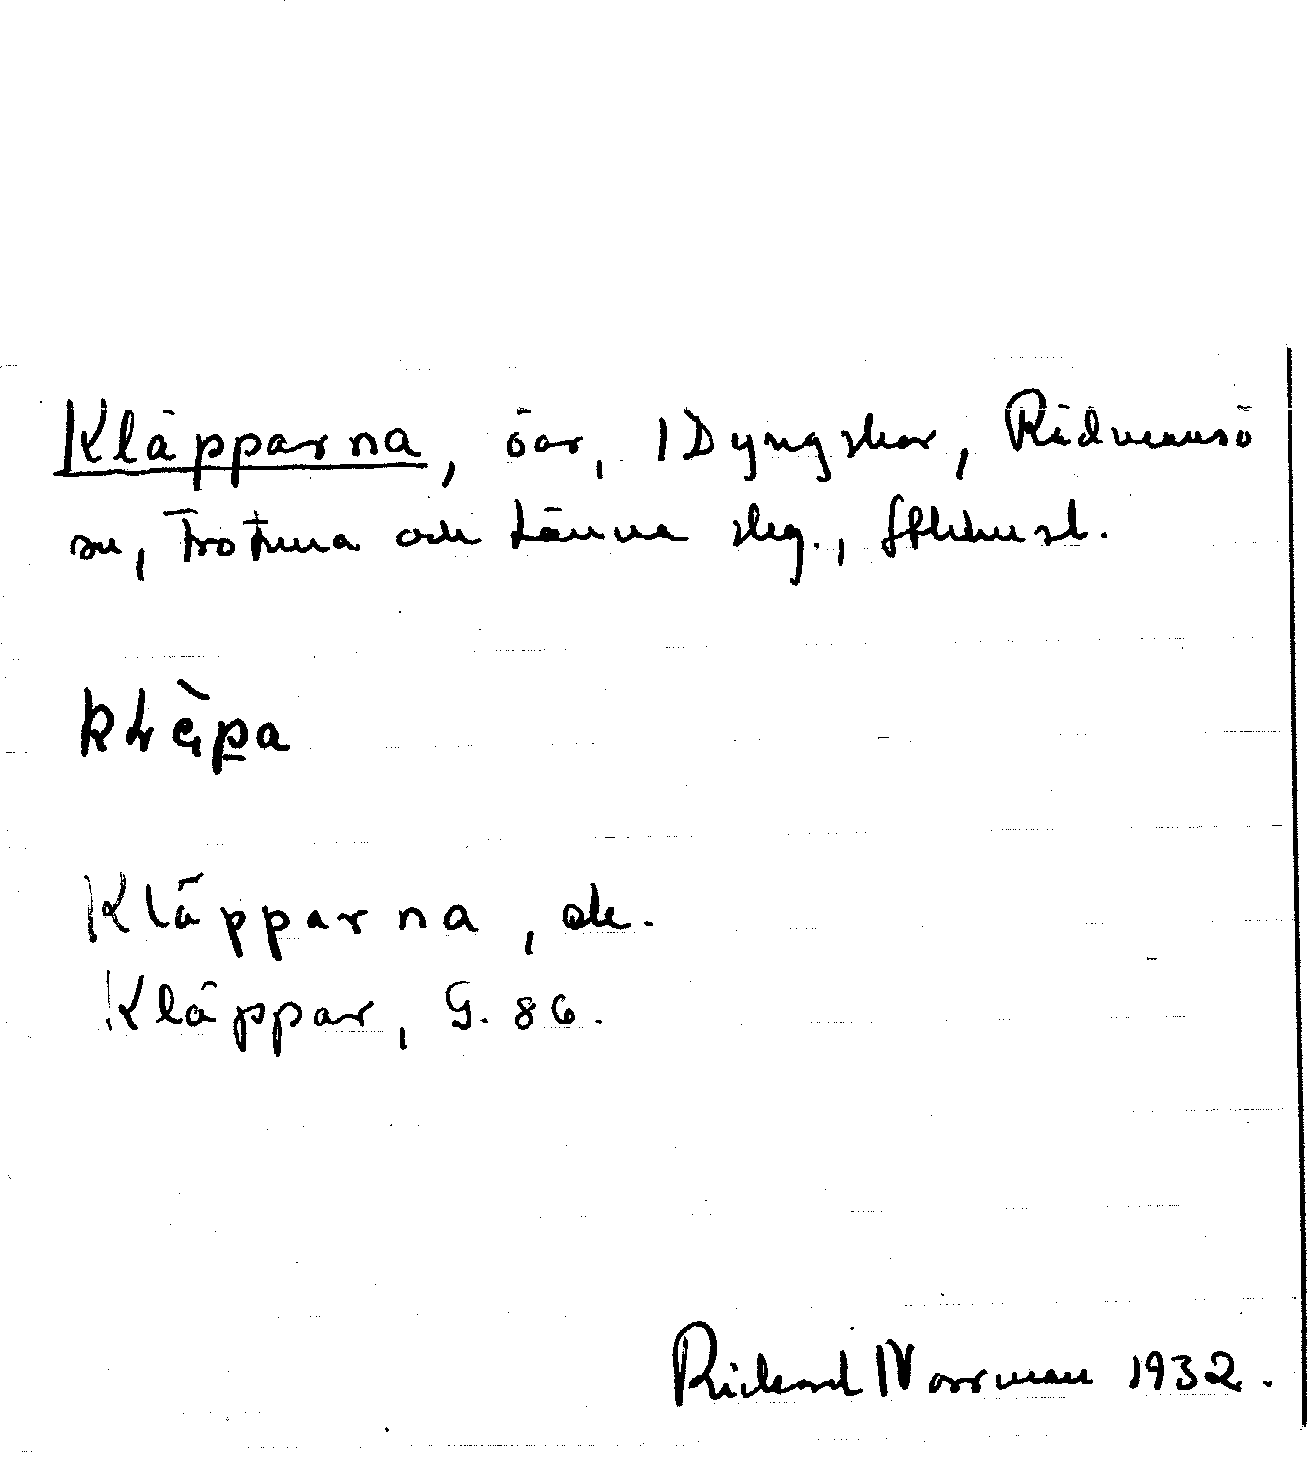 Kläpparna, öar, 1 Dyngskär, Rådmansö
sn, Frötuna och Länna skg., Sthlms l.
Kläpparna, ek.
Kläppar, G. 86.
Rickard Norrman 1932.